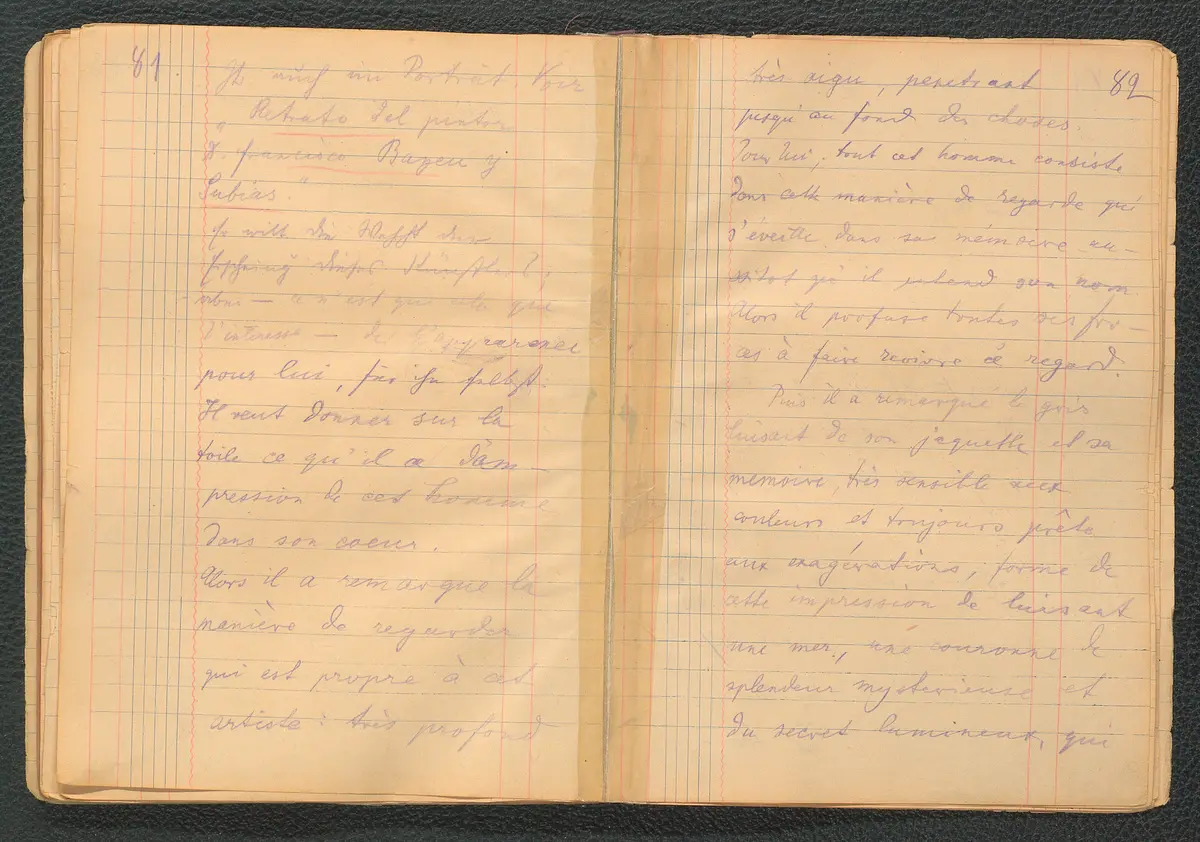 81.
Porträt
„Retrato del pintor
D. Francisco Bayeu y
Subias."
Er will die
Künstlers
ce n'est que cela qui
l'interesse — de l'apparence
pour lui, für ihn selbst:
Il veut donner sur la
toile ce qu'il a d'im-
pression de cet homme
dans son coeur.
Alors il a remarque la
manière de regarder
qui est propre à cet
artiste: très profond
82
très aigu, penetrant
jusqu'au fond des choses.
Pour lui, tout cet homme consiste
dans cette manière de regarde qui
s'éveille dans sa mémoire au-
sitot qu'il entend son nom.
Alors il toutes ses for-
ces à faire revivre ce regard.
Puis il a remarqué le gris
luisant de son jaquette et sa
memoire, très sensible aux
couleurs et toujours prête
aux exagérations, forme de
cette impression de luisant
une mer, une couronne de
splendeur mysterieuse et
du secret lumineux, qui